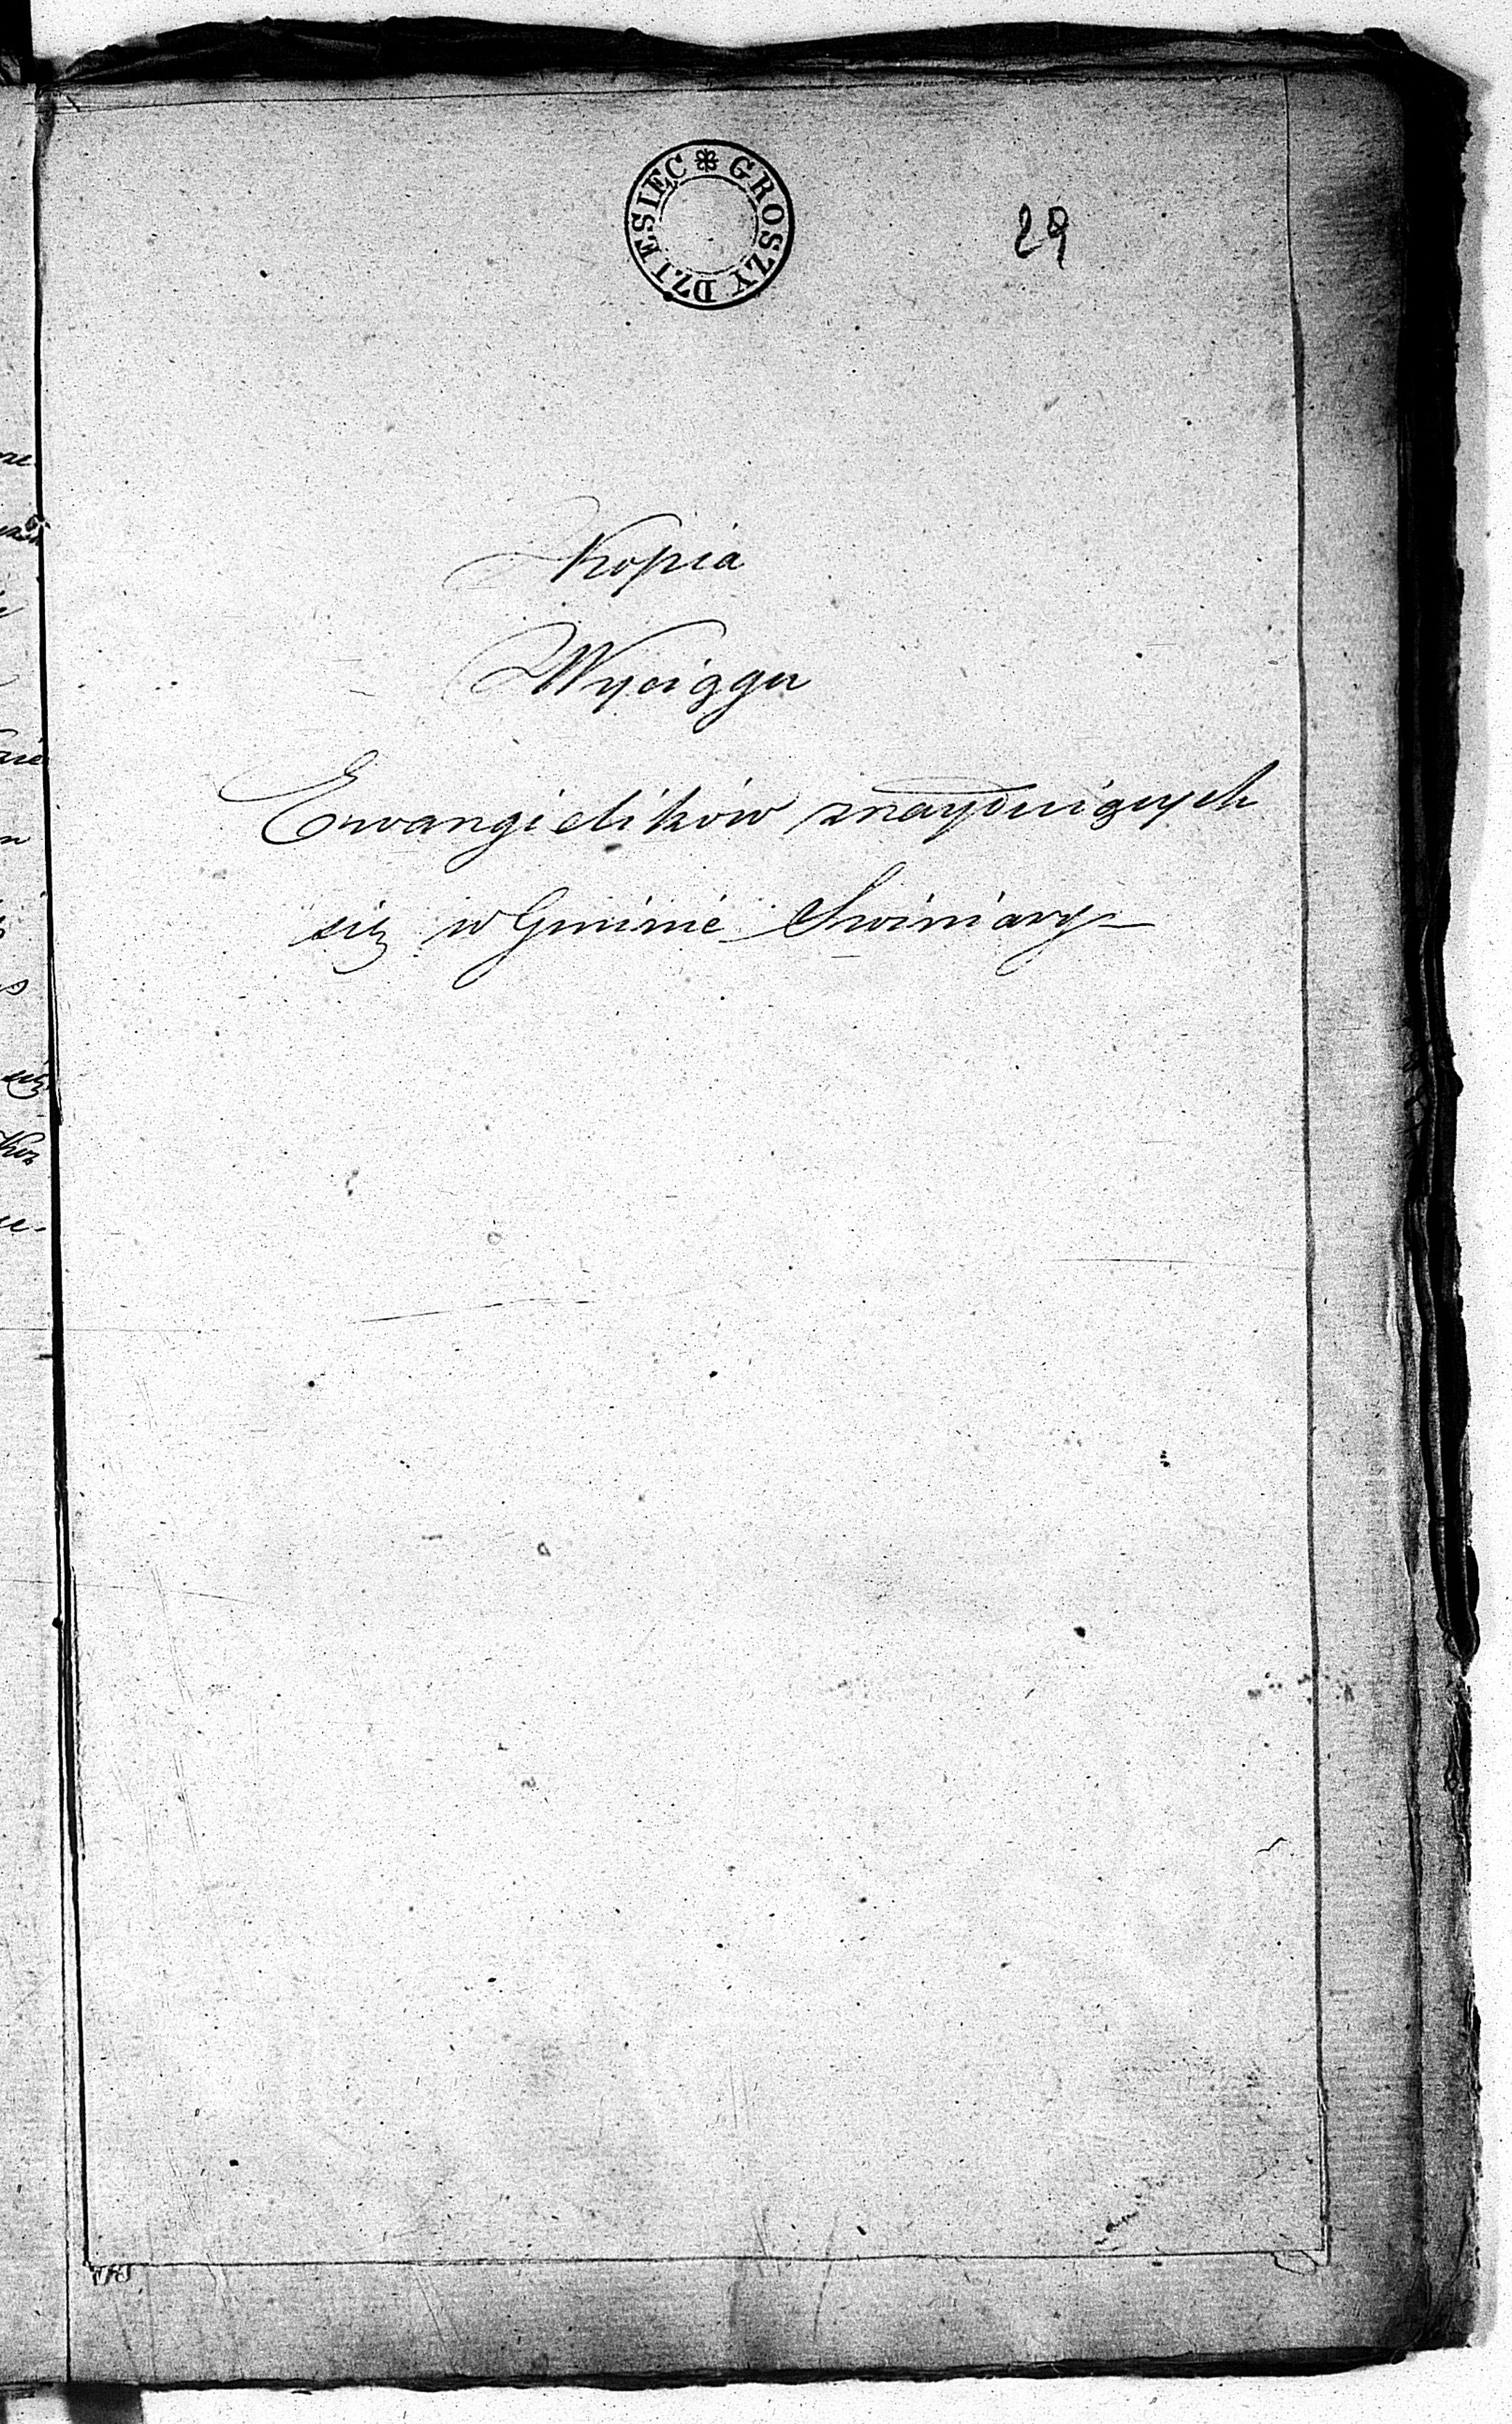 GROSZY DZIESIĘC
29
Kopia
Wyciągu
Ewangielików znayduiących
się w Gminie Swiniary